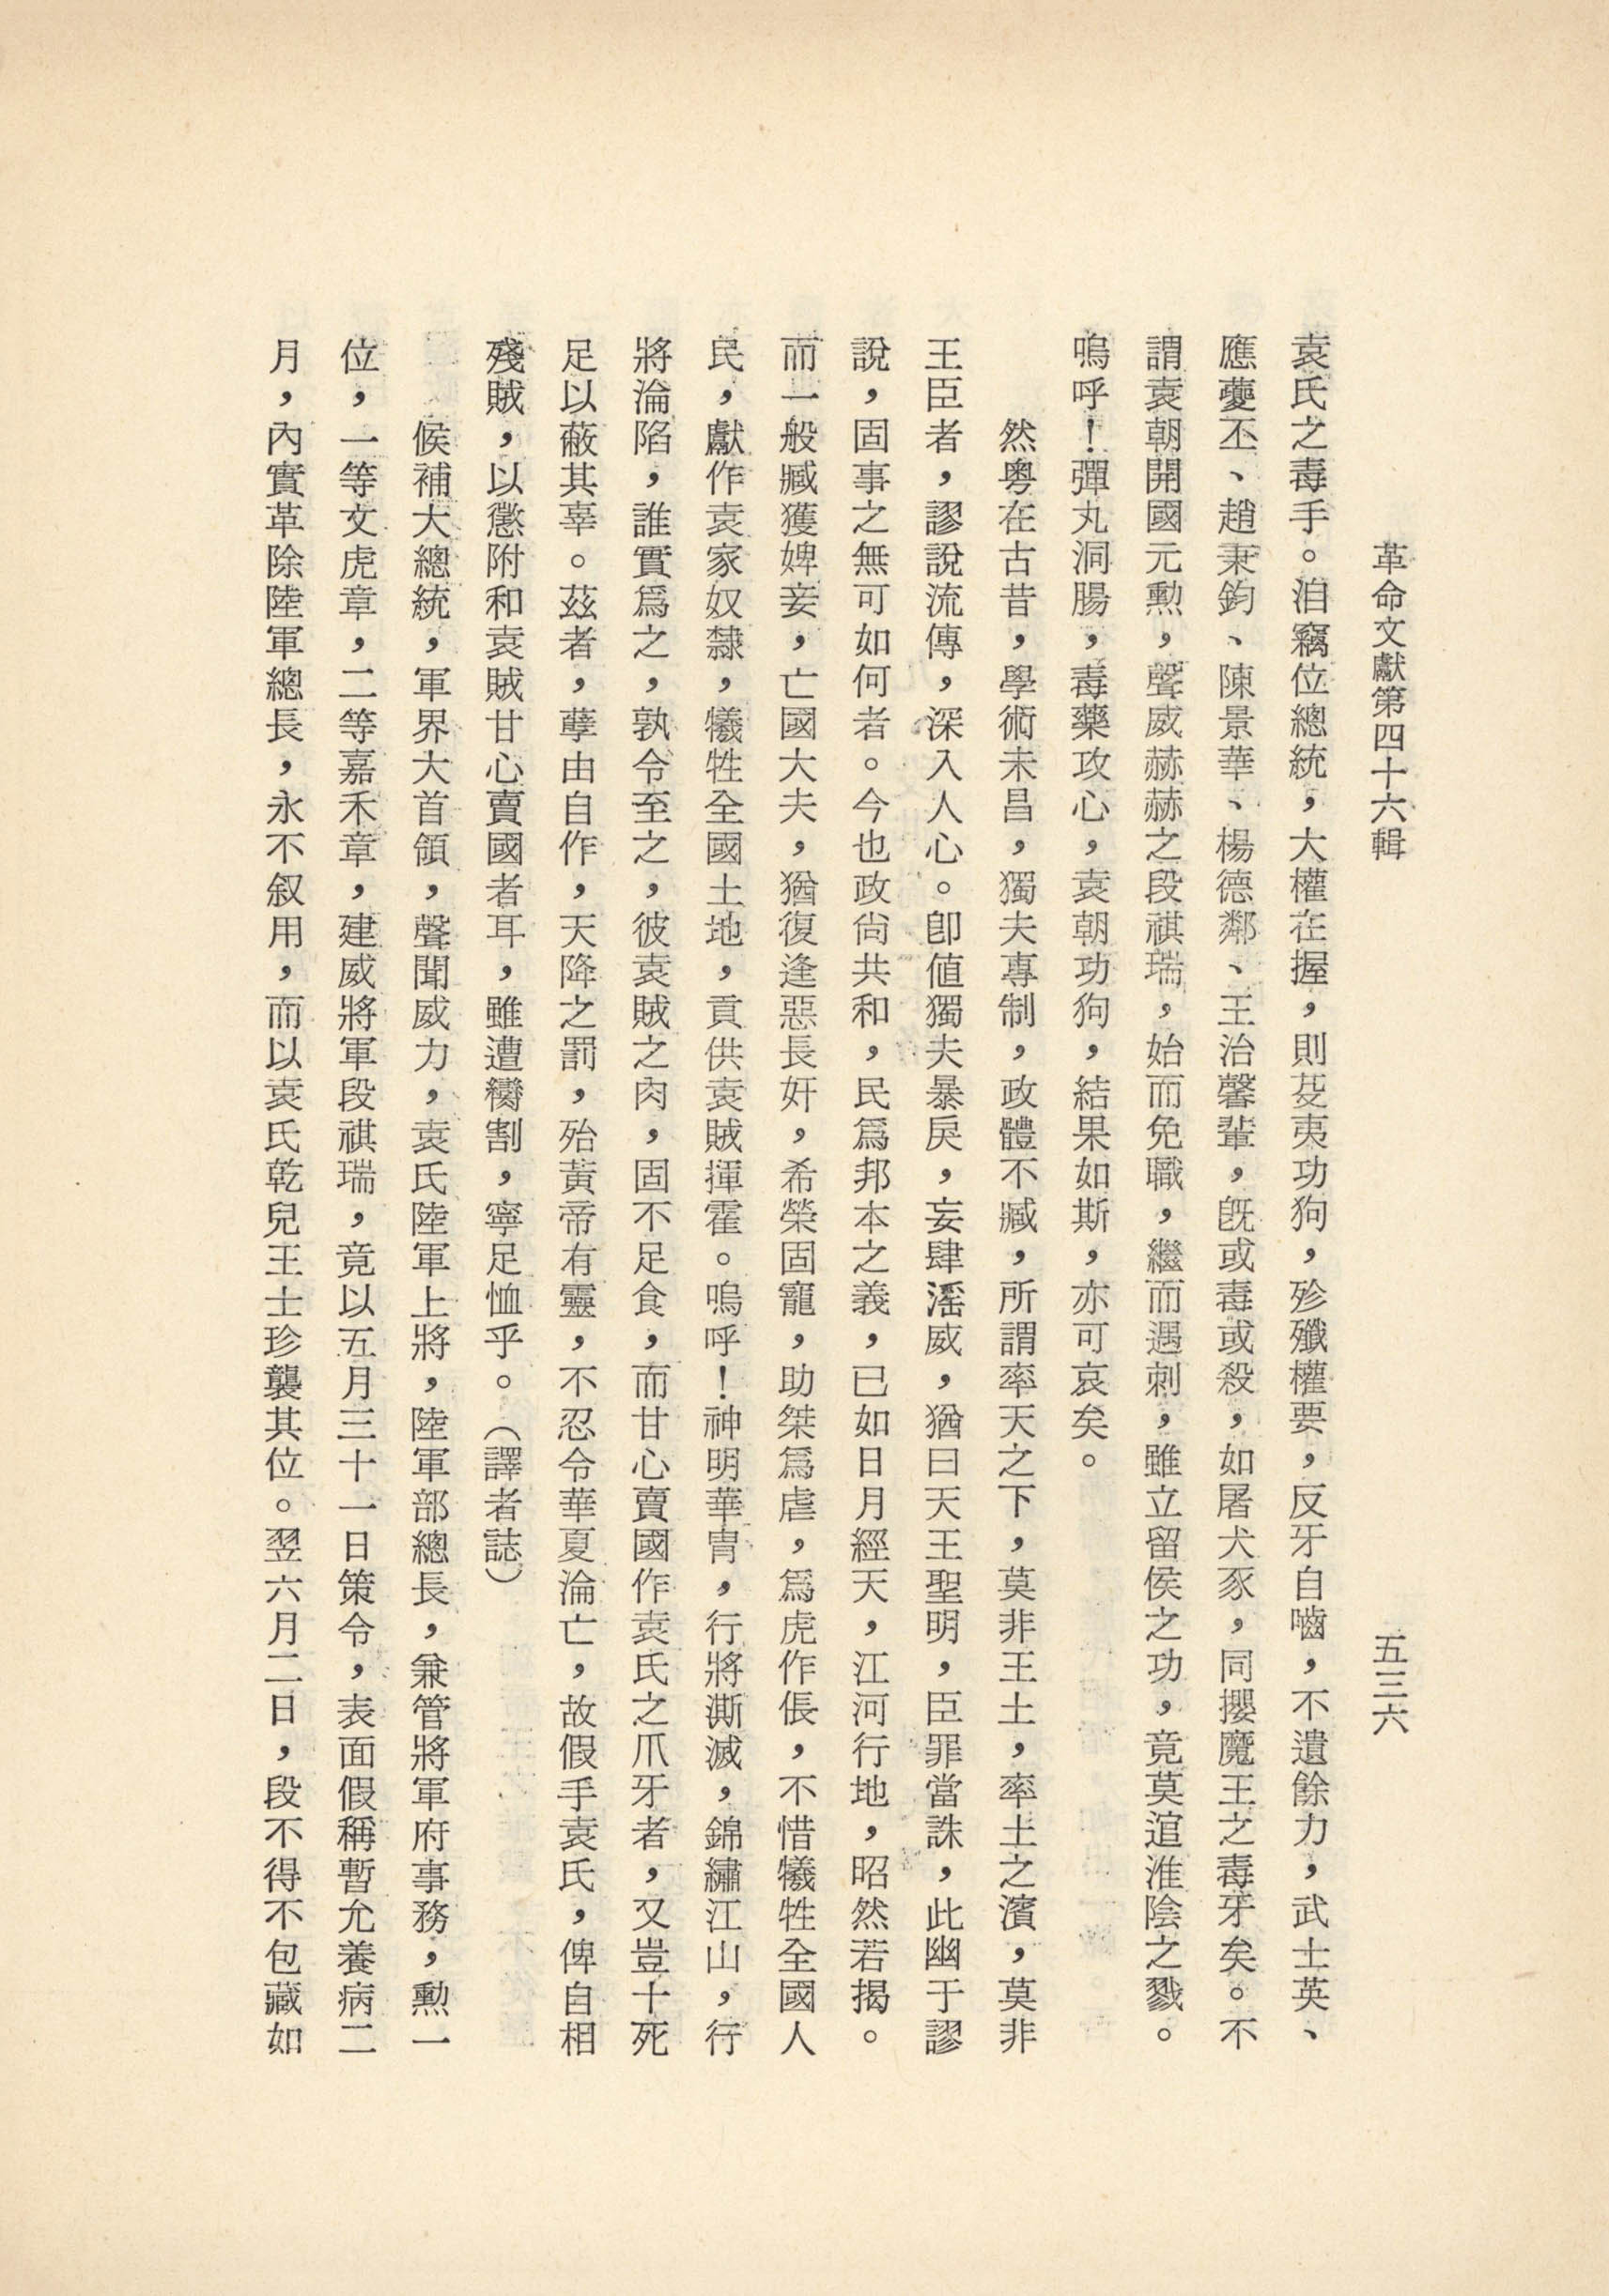 革命文獻第四十六輯
五三六
袁氏之毒手。洎竊位總統，大權在握，則芟夷功狗，殄殲權要，反牙自嚙，不遺餘力，武士英、
應夔丞、趙秉鈞、陳景華、楊德鄰、王治馨輩，旣或毒或殺，如屠犬豕，同攖魔王之毒牙矣。不
謂袁朝開國元勳，聲威赫赫之段祺瑞，始而免職，繼而遇刺，雖立留侯之功，竟莫逭淮陰之戮。
嗚呼！彈丸洞腸，毒藥攻心，袁朝功狗，結果如斯，亦可哀矣。
然粵在古昔，學術未昌，獨夫專制，政體不臧，所謂率天之下，莫非王土，率土之濱，莫非
王臣者，謬說流傳，深入人心。卽値獨夫暴戾，妄肆淫威，猶曰天王聖明，臣罪當誅，此幽于謬
說，固事之無可如何者。今也政尙共和，民爲邦本之義，已如日月經天，江河行地，昭然若揭。
而一般臧獲婢妾，亡國大夫，猶復逢惡長奸，希榮固寵，助桀爲虐，爲虎作倀，不惜犧牲全國人
民，獻作袁家奴隸，犧牲全國土地，貢供袁賊揮霍。嗚呼！神明華胄，行將澌滅，錦繡江山，行
將淪陷，誰實爲之，孰令至之，彼袁賊之肉，固不足食，而甘心賣國作袁氏之爪牙者，又豈十死
足以蔽其辜。茲者，孽由自作，天降之罰，殆黃帝有靈，不忍令華夏淪亡，故假手袁氏，俾自相
殘賊，以懲附和袁賊甘心賣國者耳，雖遭臠割，寧足恤乎。（譯者誌）
候補大總統，軍界大首領，聲聞威力，袁氏陸軍上將，陸軍部總長，兼管將軍府事務，勳一
位，一等文虎章，二等嘉禾章，建威將軍段祺瑞，竟以五月三十一日策令，表面假稱暫允養病二
月，內實革除陸軍總長，永不叙用，而以袁氏乾兒王士珍襲其位。翌六月二日，段不得不包藏如